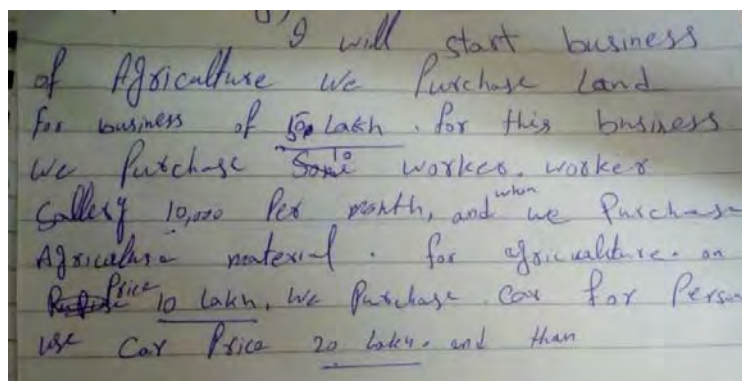 I will start business
of Agriculture We Purchase Land
for business of 50 Lakh. for this business
We Purchase 10 worker. worker
Sallery 10,000 Per month, and when we Purchase
Agriculture material. for agricualture. on
Price 10 Lakh, We Purchase Car for Person
use Car Price 20 Lakh. and than